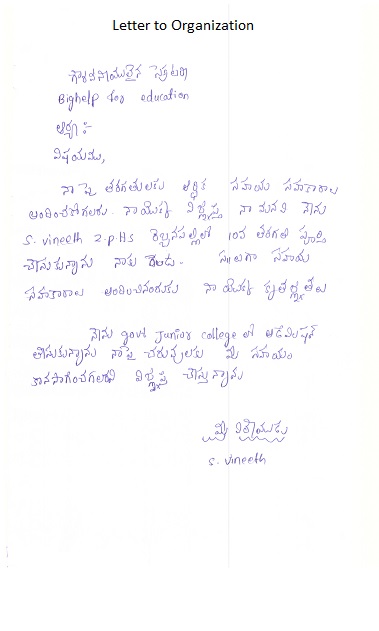 Letter to Organization
గౌరవనీయులైన
Bighelp for education
ఆర్యా :-
విషయము,
నా పై తరగతులకు ఆర్థిక సహాయ సహకారాలు
అందించగలరు. నా యొక్క విజ్ఞప్తి నా మనవి నేను
S. vineeth Z.P.H.S లో 10వ తరగతి పూర్తి
చేసుకున్నాను నాకు రెండు సహాయ
సహకారాలు అందించినందుకు నా యొక్క కృతజ్ఞతలు
నేను govt Junior college లో అడ్మిషన్
తీసుకున్నాను నా పై చదువులకు మీ సహాయం
కొనసాగించగలరని విజ్ఞప్తి చేస్తున్నాను
మీ విధేయుడు
S. vineeth